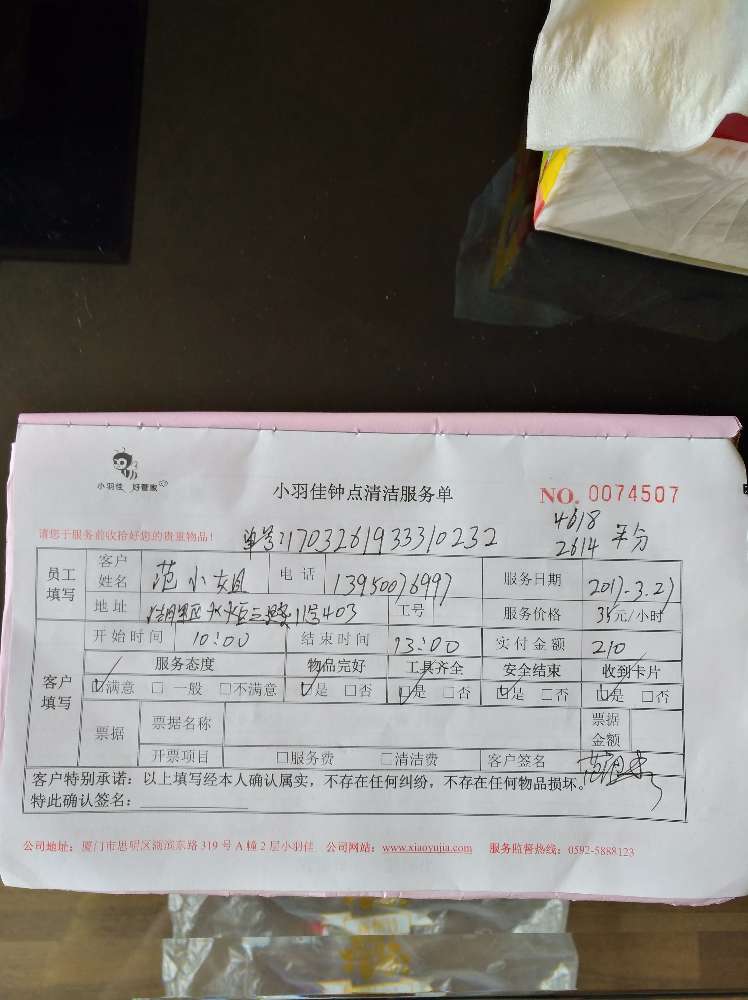 小羽佳 好管家
小羽佳钟点清洁服务单
NO. 0074507
请您于服务前收拾好您的贵重物品!
单号:1703261933310232
4618
2614
员工填写 客户姓名 范小姐 电话 13950076997 服务日期 2017.3.27
地址 11号403 工号 服务价格 35元/小时
客户填写 开始时间 10:00 结束时间 13:00 实付金额 210
服务态度 物品完好 工具齐全 安全结束 收到卡片
☑满意 □一般 □不满意 ☑是 □否 ☑是 □否 ☑是 □否 ☑是 □否
票据 票据名称 票据金额
开票项目 □服务费 □清洁费 客户签名
客户特别承诺:以上填写经本人确认属实,不存在任何纠纷,不存在任何物品损坏。
特此确认签名:
公司地址:厦门市思明区湖滨东路319号A幢2层小羽佳 公司网站:www.xiaoyujia.com 服务监督热线:0592-5888123